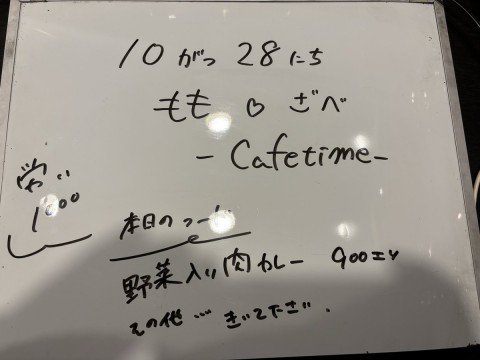 10がつ28にち
もも♡ざべ
- Cafetime -
1000
本日のフード
野菜入り肉カレー 900エン
その他…